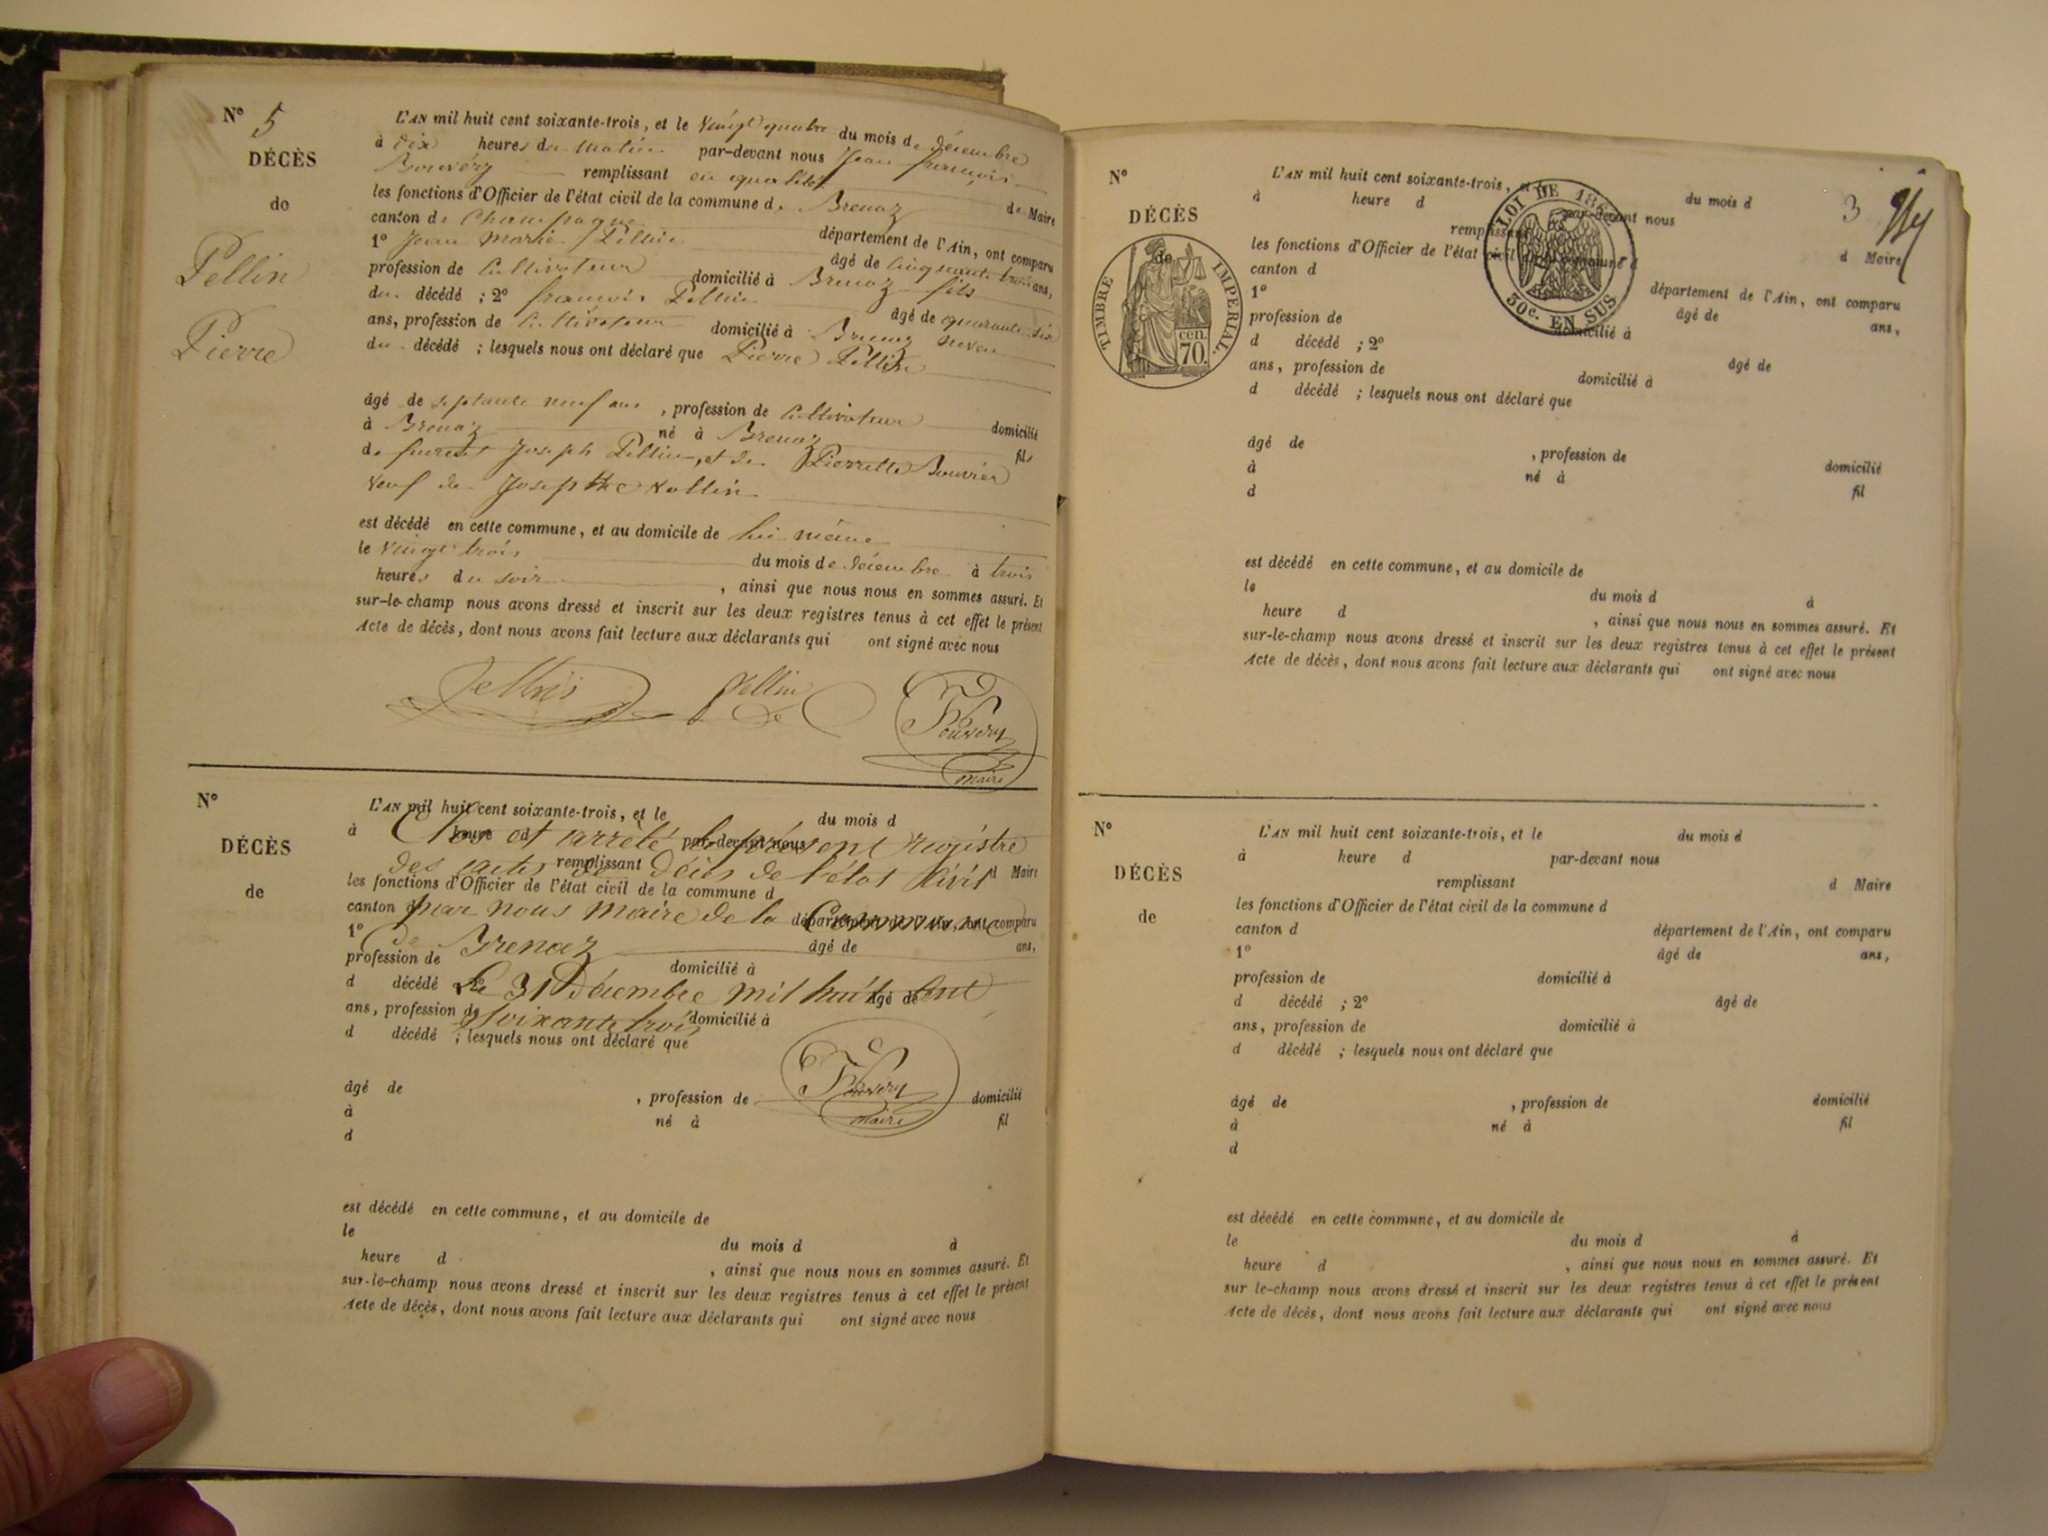 N° 5
DÉCÈS
de
Pellin
Pierre
L'AN mil huit cent soixante-trois, et le Vingt quatre du mois de décembre
à dix heures du matin par-devant nous Jean françois
Bouvéry remplissant en qualité de Maire
les fonctions d'Officier de l'état civil de la commune de Brenaz
canton de Champagne département de l'Ain, ont comparu
1° Jean Marie Pellin âgé de cinquante trois ans,
profession de cultivateur domicilié à Brenaz fils
du décédé ; 2° françois Pellin âgé de quarante six
ans, profession de cultivateur domicilié à Brenaz neveu
du décédé ; lesquels nous ont déclaré que Pierre Pellin
âgé de septante neuf ans, profession de cultivateur domicilié
à Brenaz né à Brenaz fils
de Joseph Pellin, et de Pierrette Bouvier
Veuf de Josephte
est décédé en cette commune, et au domicile de lui même
le vingt trois du mois de décembre à trois
heures du soir, ainsi que nous nous en sommes assuré. Et
sur-le-champ nous avons dressé et inscrit sur les deux registres tenus à cet effet le présent
Acte de décès, dont nous avons fait lecture aux déclarants qui ont signé avec nous
Pellin
maire
N°
DÉCÈS
de
L'AN mil huit cent soixante-trois, et le du mois d
à heure d par-devant nous
remplissant d Maire
les fonctions d'Officier de l'état civil de la commune d
canton d département de l'Ain, ont comparu
1° âgé de ans,
profession de domicilié à
d décédé ; 2° âgé de
ans, profession de domicilié à
d décédé ; lesquels nous ont déclaré que
Clos et arrêté le présent registre
des actes de décès de l'état civil
par nous maire de la Commune
de Brenaz
Le 31 Décembre mil huit cent
soixante trois
maire
âgé de , profession de domicilié
à né à fil
d
est décédé en cette commune, et au domicile de
le du mois d à
heure d , ainsi que nous nous en sommes assuré. Et
sur-le-champ nous avons dressé et inscrit sur les deux registres tenus à cet effet le présent
Acte de décès, dont nous avons fait lecture aux déclarants qui ont signé avec nous
3
N°
DÉCÈS
de
TIMBRE IMPERIAL.
70 cen.
LOI DE 1862
30c. EN SUS
L'AN mil huit cent soixante-trois, et le du mois d
à heure d par-devant nous
remplissant d Maire
les fonctions d'Officier de l'état civil de la commune d
canton d département de l'Ain, ont comparu
1° âgé de ans,
profession de domicilié à
d décédé ; 2° âgé de
ans, profession de domicilié à
d décédé ; lesquels nous ont déclaré que
âgé de , profession de domicilié
à né à fil
d
est décédé en cette commune, et au domicile de
le du mois d à
heure d , ainsi que nous nous en sommes assuré. Et
sur-le-champ nous avons dressé et inscrit sur les deux registres tenus à cet effet le présent
Acte de décès, dont nous avons fait lecture aux déclarants qui ont signé avec nous
N°
DÉCÈS
de
L'AN mil huit cent soixante-trois, et le du mois d
à heure d par-devant nous
remplissant d Maire
les fonctions d'Officier de l'état civil de la commune d
canton d département de l'Ain, ont comparu
1° âgé de ans,
profession de domicilié à
d décédé ; 2° âgé de
ans, profession de domicilié à
d décédé ; lesquels nous ont déclaré que
âgé de , profession de domicilié
à né à fil
d
est décédé en cette commune, et au domicile de
le du mois d à
heure d , ainsi que nous nous en sommes assuré. Et
sur le-champ nous avons dressé et inscrit sur les deux registres tenus à cet effet le présent
Acte de décès, dont nous avons fait lecture aux déclarants qui ont signé avec nous